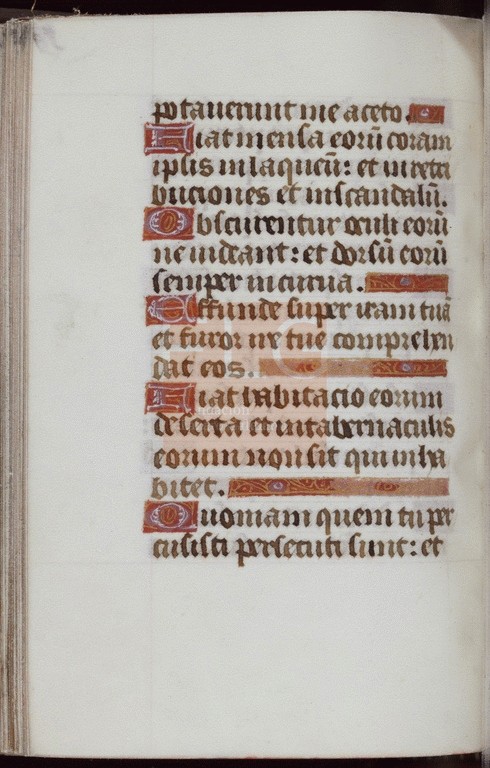 potauerunt me aceto.
Fiat mensa eorū coram
ipsis in laqueū: et in retri
buciones et in scandalū.
Obscurentur oculi eorū
ne uideant: et dorsū eorū
semper incurua.
Effunde super iram tuā
et furor ire tue comprehen
dat eos.
Fiat habitacio eorum
deserta et in tabernaculis
eorum non sit qui inha
bitet.
Quoniam quem tu per
cusisti persecuti sunt: et